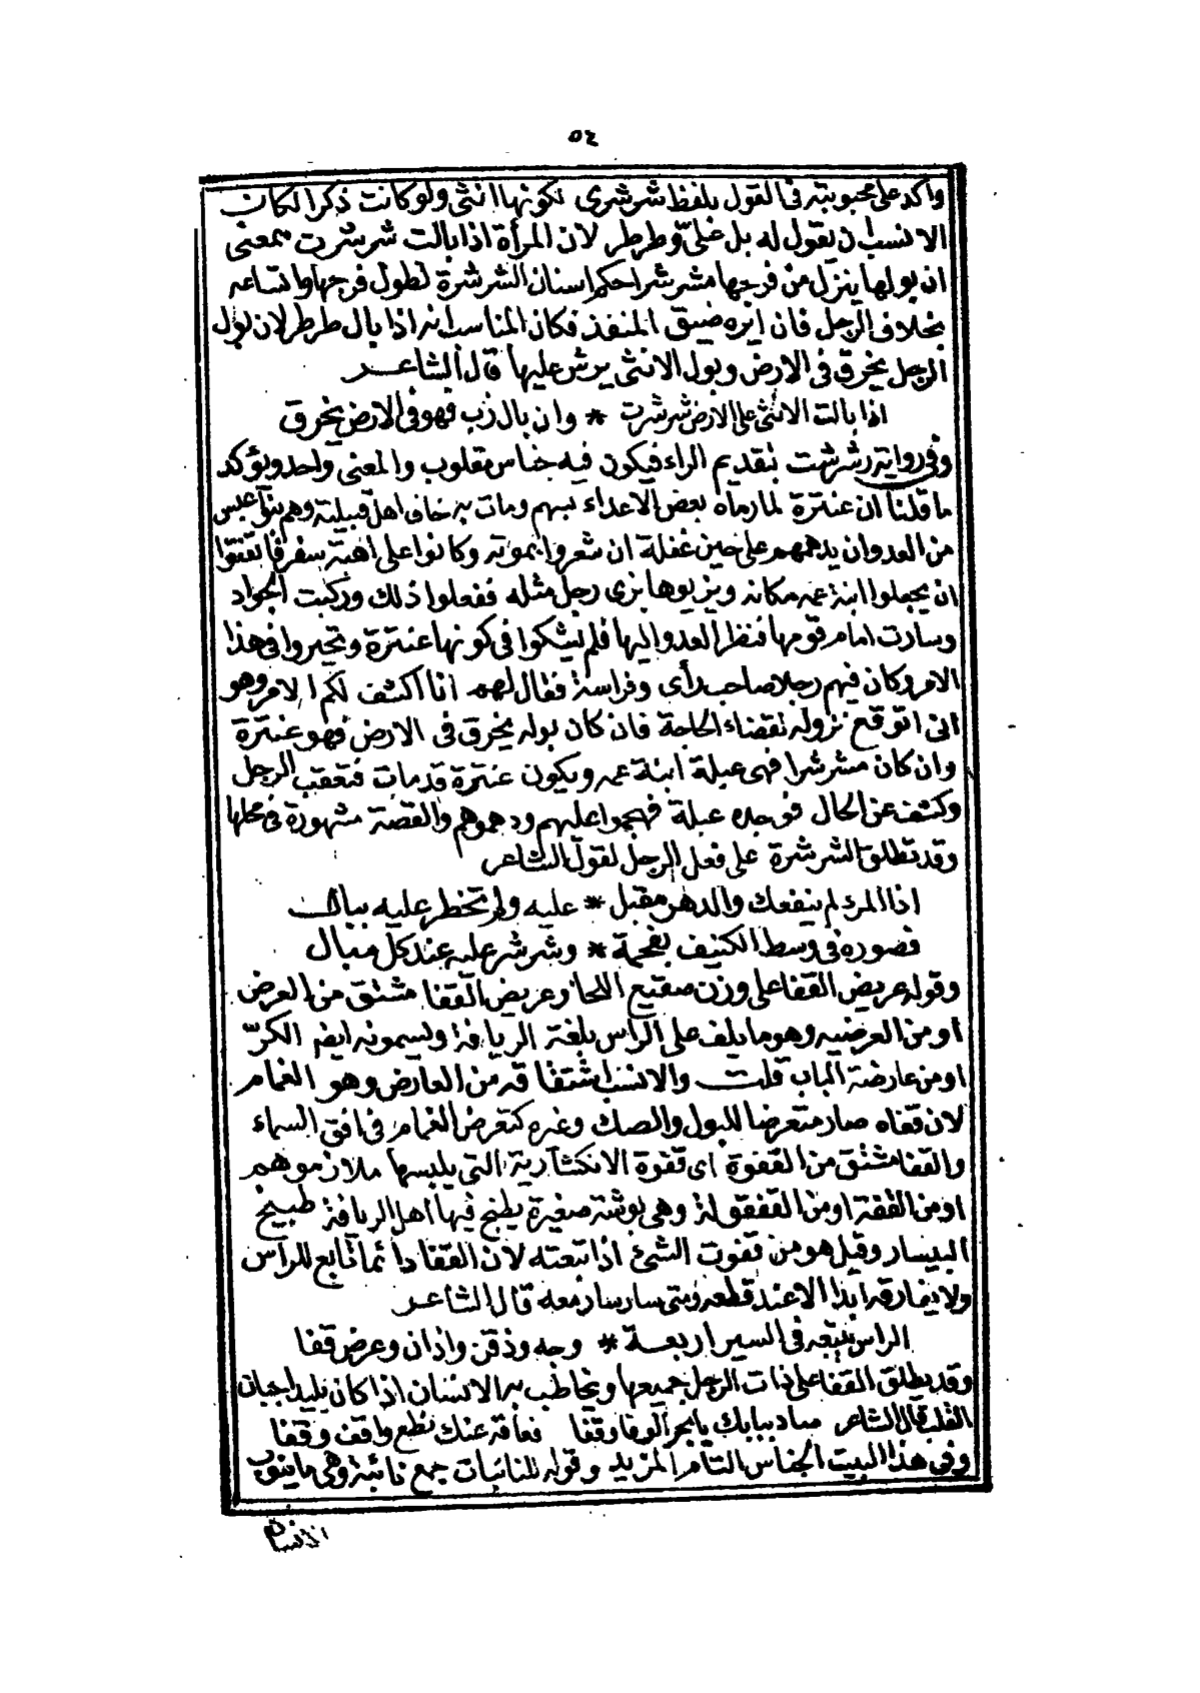 ٥٤
واكد على محبوبته فى القول بلفظ شرشرى لكونها انثى ولو كانت ذكرا لكان
الانسب ان يقول له بل على وطرطر لان المرأة اذا بالت شرشرت بمعنى
ان بولها ينزل من فرجها مشرشرا حكم اسنان الشرشرة لطول فرجها واتساعه
بخلاف الرجل فان ايره ضيق المنفذ فكان المناسب انه اذا بال طرطر لان بول
الرجل يخرق فى الارض وبول الانثى يرش عليها قال الشاعر
اذا بالت الانثى على الارض شرشرت * وان بال زب فهو فى الارض يخرق
وفى رواية رشرشت بتقديم الراء فيكون فيه جناس مقلوب والمعنى واحد ويؤكد
ما قلنا ان عنترة لما رماه بعض الاعداء بسهم ومات به خاف اهل قبيلته وهم بنو عبس
من العدو ان يدهمهم على حين غفلة ان شعروا بموته وكانوا على اهبة سفر فاتفقوا
ان يجعلوا ابنة عمه مكانه ويزيوها بزى رجل مثله ففعلوا ذلك وركبت الجواد
وسارت امام قومها فنظر العدو اليها فلم يشكوا فى كونها عنترة وتحيروا فى هذا
الامر وكان فيهم رجلا صاحب رأى وفراسة فقال لهم انا اكشف لكم الامر وهو
انى اتوقع نزوله لقضاء الحاجة فان كان بوله يخرق فى الارض فهو عنترة
وان كان مشرشرا فهى عبلة ابنة عمه ويكون عنترة قد مات فتعقب الرجل
وكشف عن الحال فوجده عبلة فهجموا عليهم ودهموهم والقصة مشهورة فى محلها
وقد تطلق الشرشرة على فعل الرجل لقول الشاعر
اذا المرء لم ينفعك والدهر مقبل * عليه ولم تخطر عليه ببال
فصوره فى وسط الكنيف بفحمة * وشرشر عليه عند كل مبال
وقوله عريض القفا على وزن صقيع اللحا وعريض القفا مشتق من العرض
او من العرضيه وهو ما يلف على الراس بلغة الريافة ويسمونه ايضا الكرّ
او من عارضة الباب قلت والانسب اشتقاقه من العارض وهو الغمام
لان قفاه صار متعرضا للبول والصك وغيره كتعرض الغمام فى افق السماء
والقفا مشتق من القفوة اى قفوة الانكشارية التى يلبسها ملازموهم
او من القفة او من القفقولة وهى بوشة صغيرة يطبخ فيها اهل الريافة طبيخ
البيسار وقيل هو من قفوت الشئ اذا تبعته لان القفا دائما تابع للرأس
ولا يفارقه ابدا الا عند قطعه ومتى سار سار معه قال الشاعر
الراس يتبعه فى السير اربعة * وجه وذقن واذان وعرض قفا
وقد يطلق القفا على ذات الرجل جميعها ويخاطب به الانسان اذا كان بليدا جبان
القلب قال الشاعر ببابك يا بحر الوفا وقفا عنك واقف وقفا
وفى هذا البيت الجناس التام المزيد وقوله للنائبات جمع نائبة وهى ما ينوب
الانسان